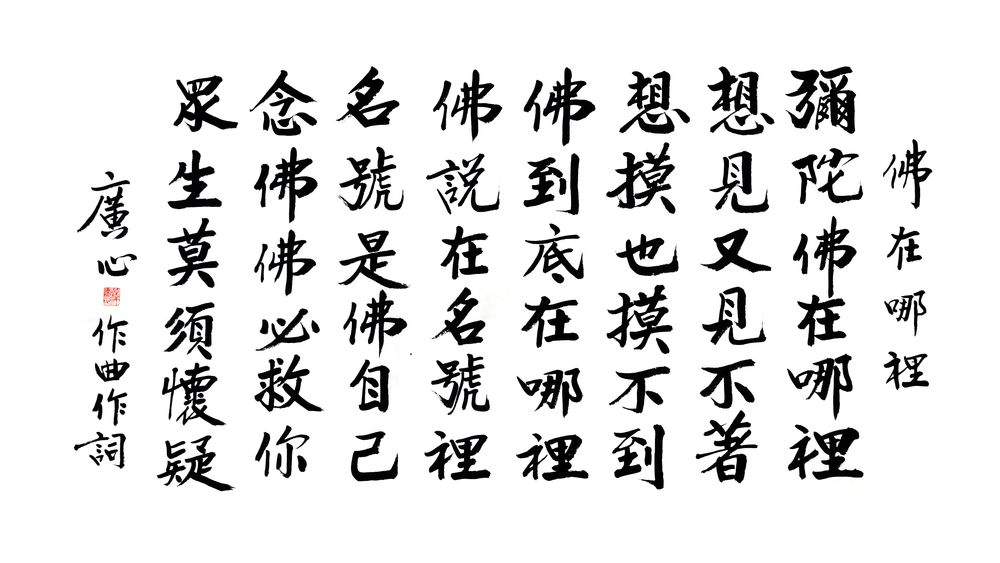 佛在哪裡
彌陀佛在哪裡
想見又見不著
想摸也摸不到
佛到底在哪裡
佛説在名號裡
名號是佛自己
念佛佛必救你
眾生莫須懷疑
廣心
作曲作詞